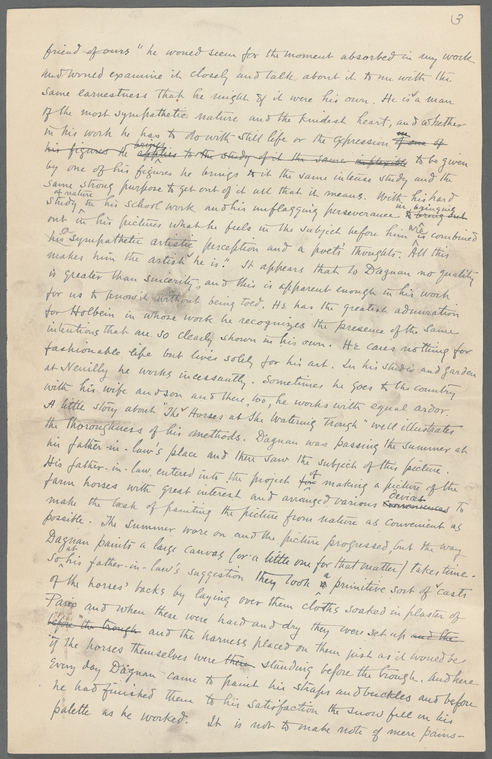 3
friend of ours" he woned seem for the moment absorbed in my work
and woned examine it closely and talk about it to me with the
same earnestness that he might if it were his own. He is a man
of the most sympathetic nature and the kindest heart, and whether
in his work he has to do with still life or the expression on if one of
his figures he brings applies to the study of it the same to be given
by one of his figures he brings to it the same intense study and the
same strong purpose to get out of it all that it means. With his hard
study of nature in his school work and his unflagging perseverance in bringing to bring out
out in his pictures what he feels in the subject before him are is combined
his sympathetic artistic perception and a poet's thoughts. All this
makes him the artist he is." It appears that to Dagnan no quality
is greater than sincerity, and this is apparent enough in his work
for us to know it without being told. He has the greatest admiration
for Holbein in whose work he recognizes the presence of the same
intentions that are so clearly shown in his own. He cares nothing for
fashionable life but lives solely for his art. In his studio and garden
at Neuilly he works incessantly. Sometimes he goes to the country
with his wife and son and there, too, he works with equal ardor.
A little story about "The Horses at the Watering Trough" well illustrates
the thoroughness of his methods. Dagnan was passing the summer at
his father-in-law's place and there saw the subject of this picture.
His father-in-law entered into the project for of making a picture of the
farm horses with great interest and arranged various conveniences devices to
make the task of painting the picture from nature as convenient as
possible. The summer wore on and the picture progressed, but the way
Dagnan paints a large canvas (or a little one for that matter) takes time.
So at his father-in-law's suggestion they took a primitive sort of casts
of the horses' backs by laying over them cloths soaked in plaster of
Paris and when these were hard and dry they were set up and the
before the trough and the harness placed on them just as it woned be
if the horses themselves were there standing before the trough. And here
every day Dagnan came to paint his straps and buckles and before
he had finished them to his satisfaction the snow fell on his
palette as he worked. It is not to make note of mere pains-